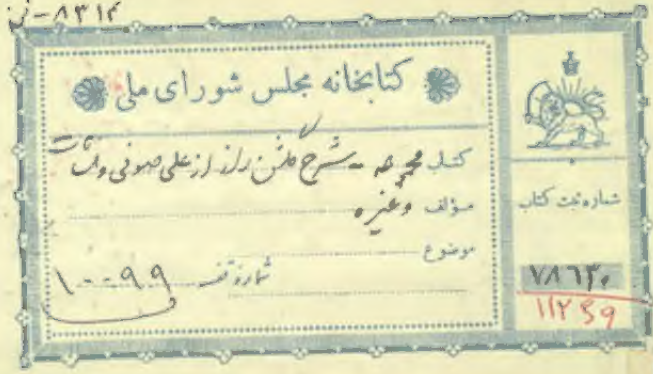 ۸۳۱۲-ن
کتابخانه مجلس شورای ملی
کتاب مجموعه - شرح گلشن راز از علی صوفی
مؤلف وغیره
موضوع
شماره قفسه ۱۰۰۹۹
شماره ثبت کتاب
۷۸۶۳۰
۱۱۲۵۹